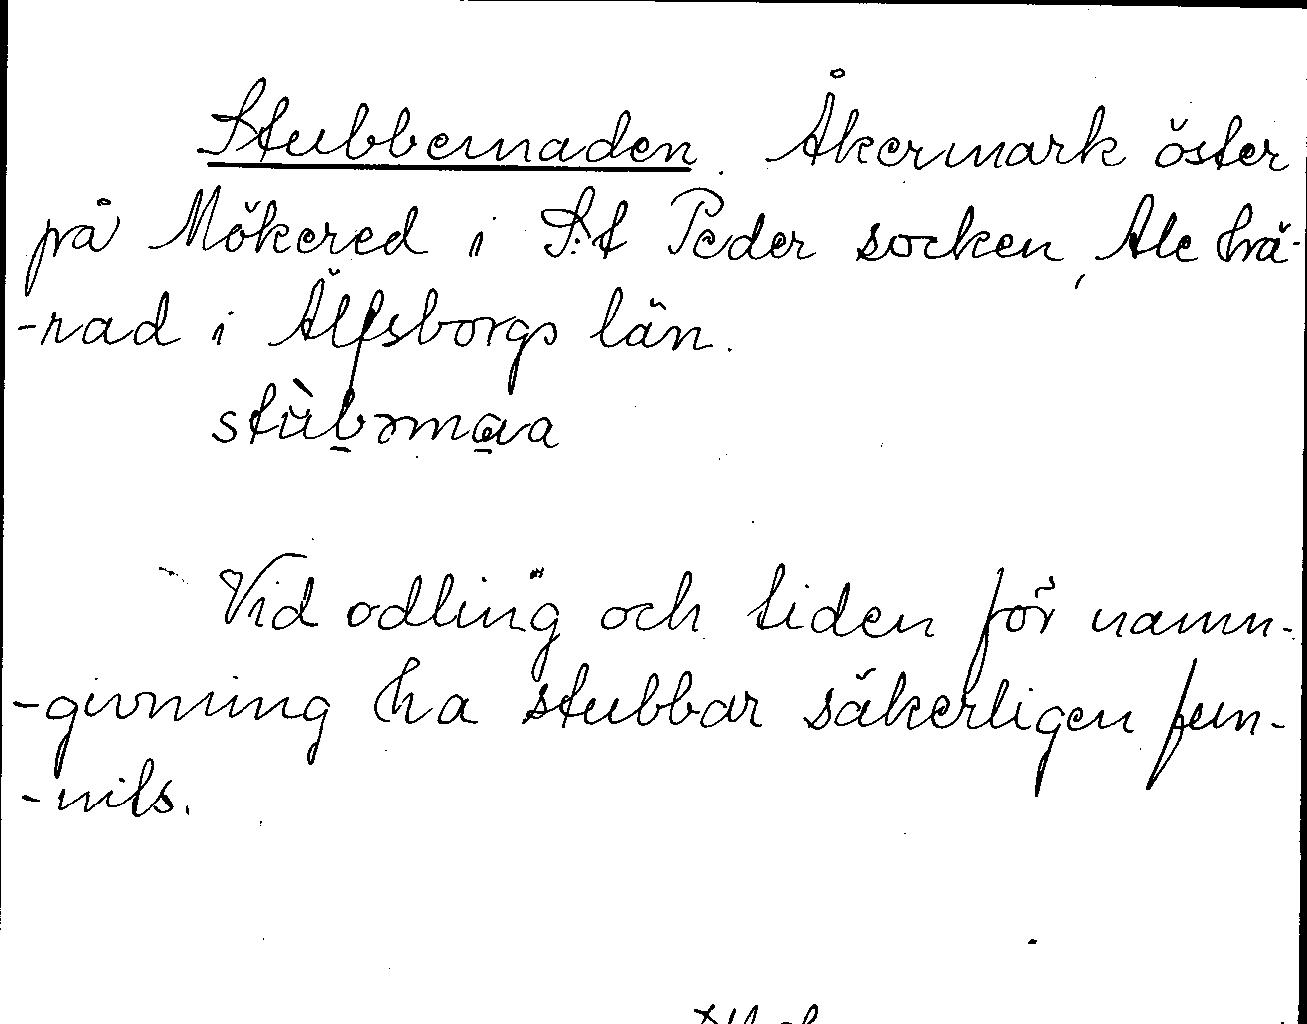 Stubbemaden. Åkermark öster
på Mökered i S:t Peder socken, Ale hä-
-rad i Älfsborgs län.
Vid odling och tiden för namn-
-givning ha stubbar säkerligen fun-
-nits.